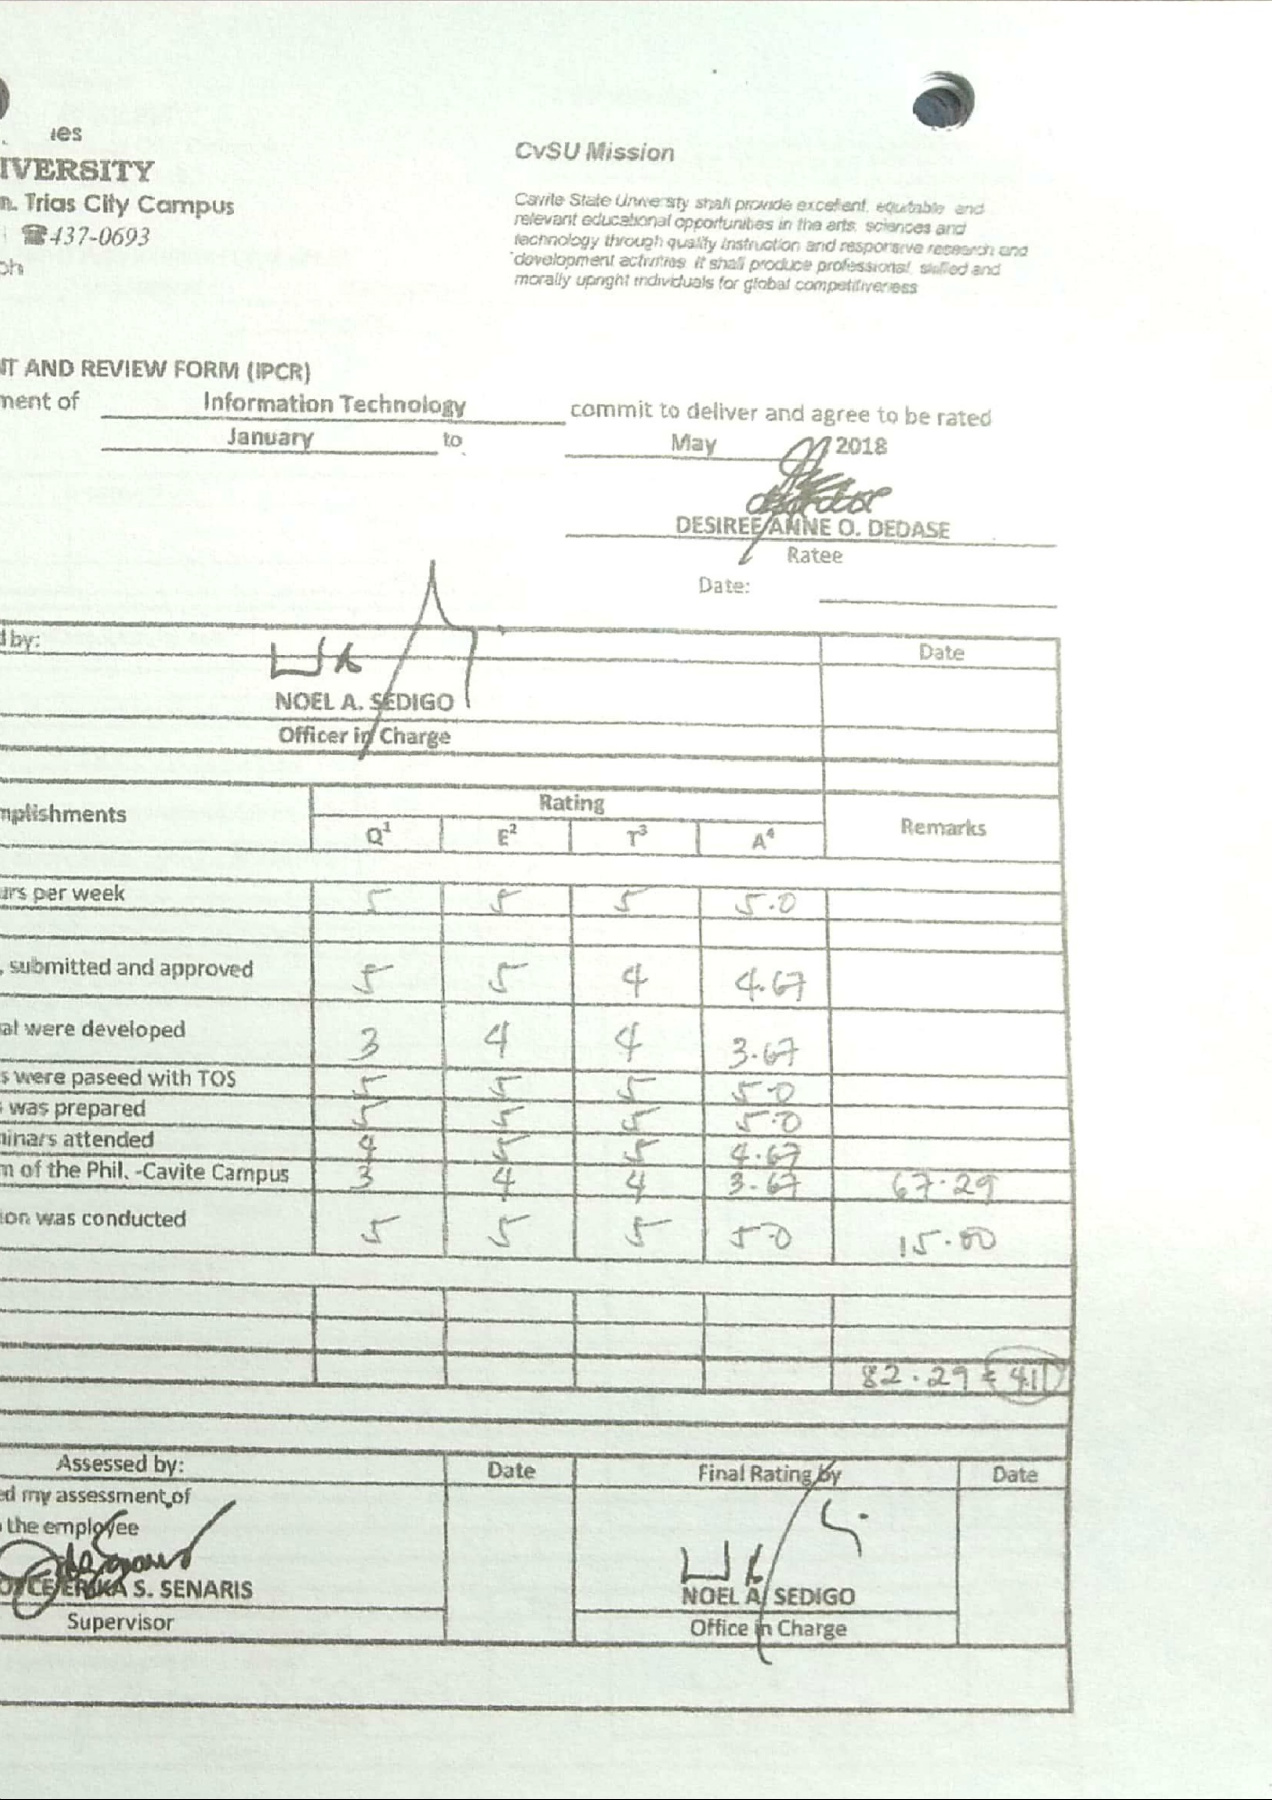 IVERSITY
n. Trias City Campus
☎437-0693
CvSU Mission
Cavite State University shall provide excellent, equitable and
relevant educational opportunities in the arts, sciences and
technology through quality instruction and responsive research and
development activities. It shall produce professional, skilled and
morally upright individuals for global competitiveness
T AND REVIEW FORM (IPCR)
ment of Information Technology commit to deliver and agree to be rated
January to May 2018
DESIREE ANNE O. DEDASE
Ratee
Date:
d by: Date
NOEL A. SEDIGO
Officer in Charge
mplishments Rating Remarks
Q¹ E² T³ A⁴
urs per week 5 5 5 5.0
, submitted and approved 5 5 4 4.67
al were developed 3 4 4 3.67
s were paseed with TOS 5 5 5 5.0
was prepared 5 5 5 5.0
minars attended 4 5 5 4.67
m of the Phil. -Cavite Campus 3 4 4 3.67 67.29
ion was conducted 5 5 5 5.0 15.00
82.29 = 4.11
Assessed by: Date Final Rating by Date
ed my assessment of
the employee
ERIKA S. SENARIS NOEL A. SEDIGO
Supervisor Office in Charge